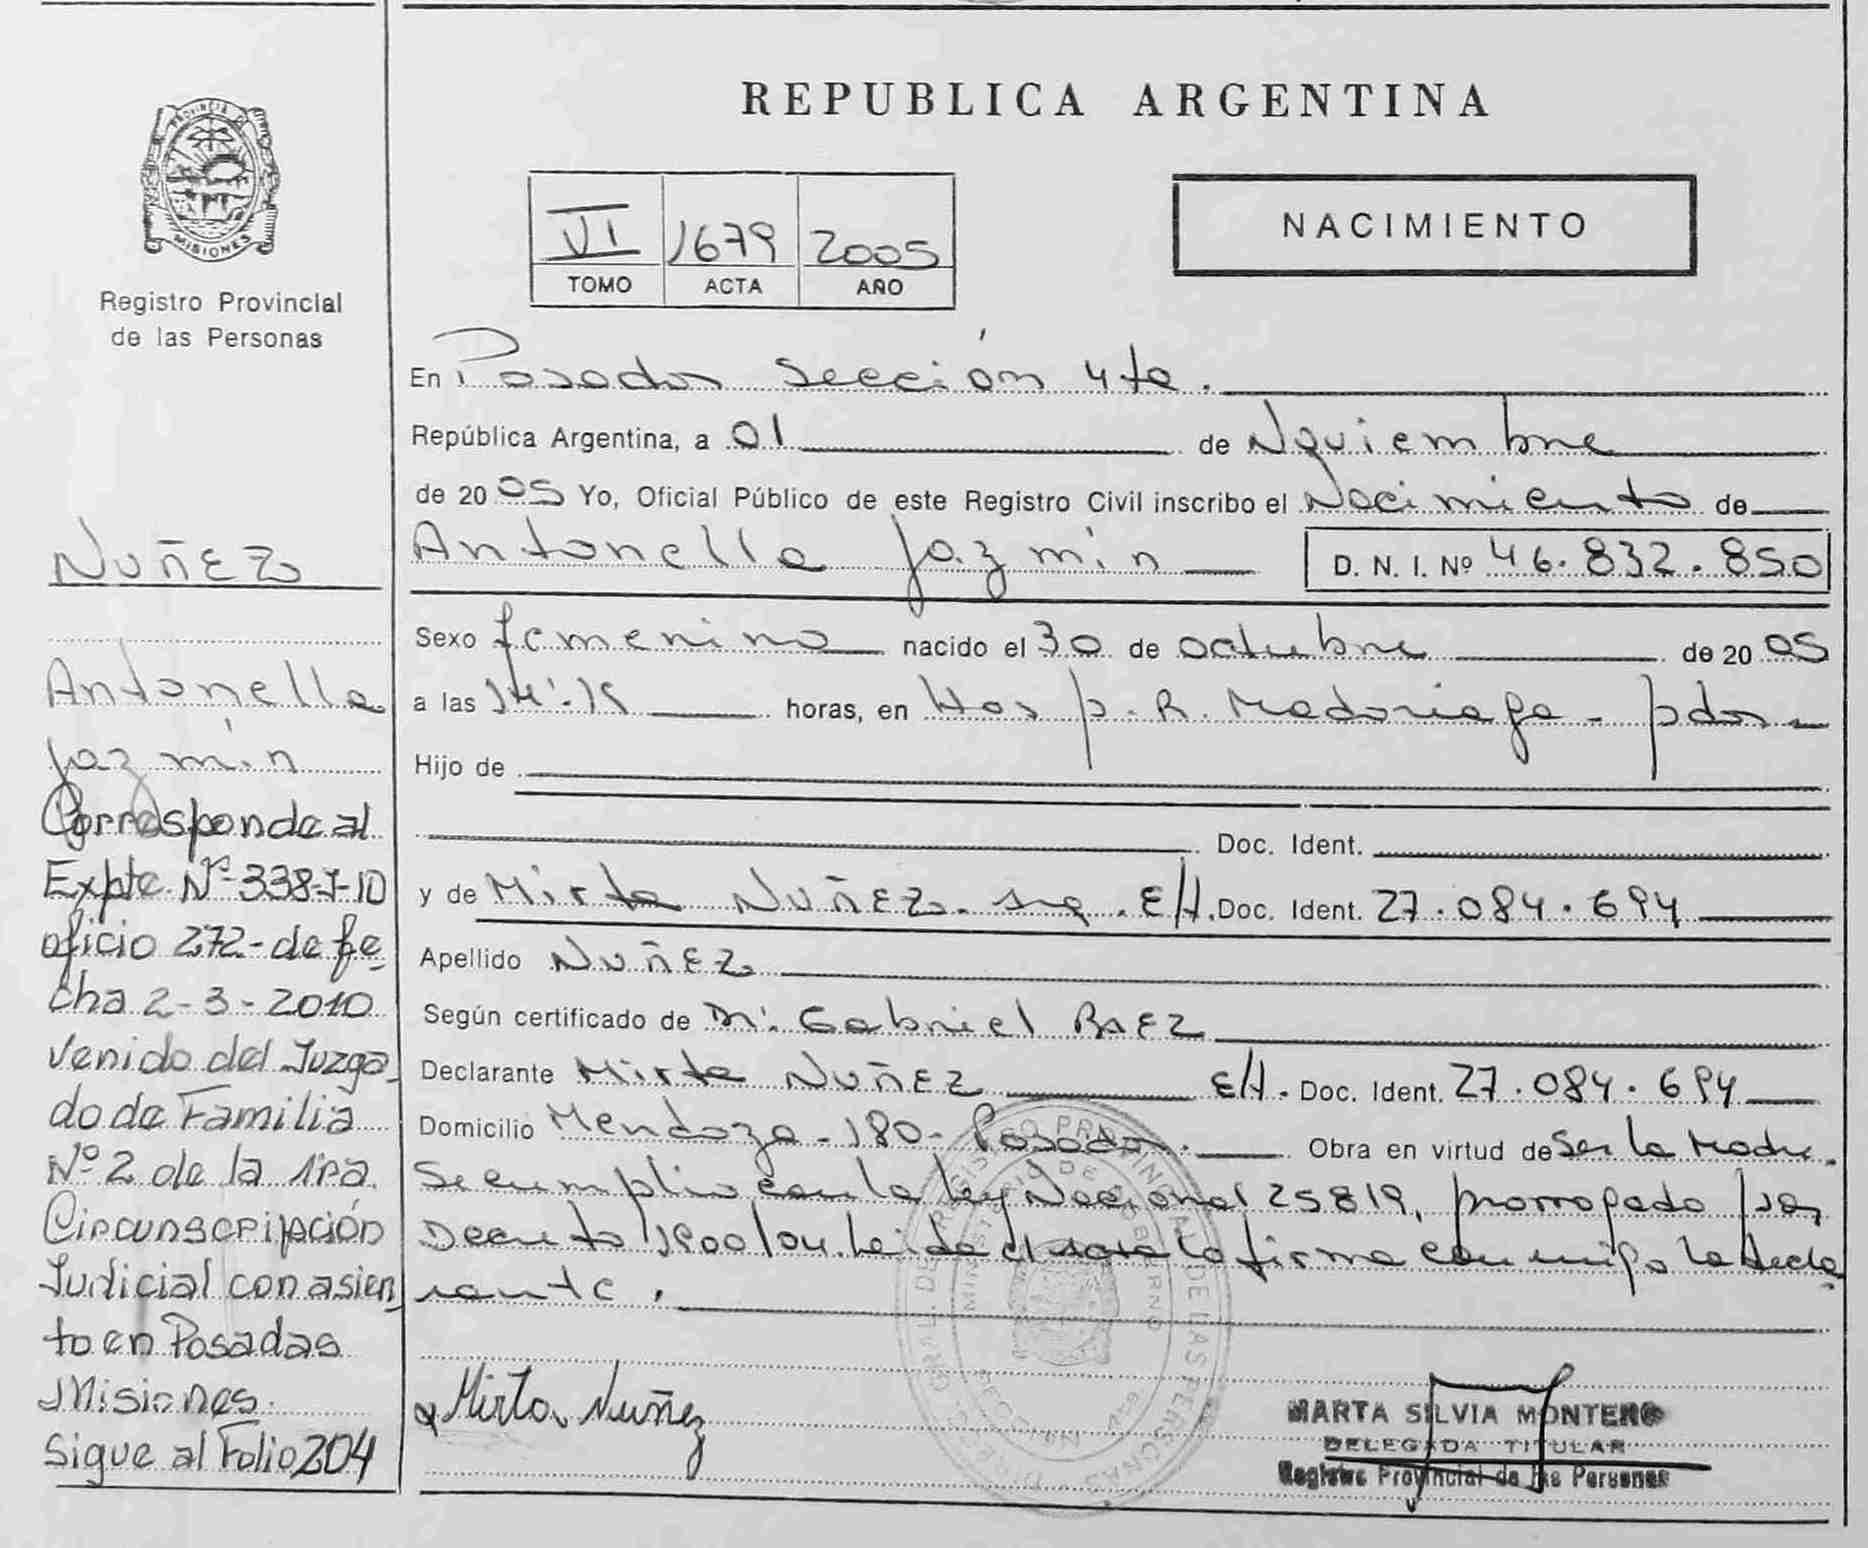 PROVINCIA DE
MISIONES
Registro Provincial
de las Personas
NUÑEZ
Antonella
Jazmín
Corresponde al
Expte. Nº 338-J-10
oficio 272- de fe
cha 2-3-2010
venido del Juzga
do de Familia
Nº 2 de la 1ra.
Circunscripción
Judicial con asien
to en Posadas
Misiones.
Sigue al Folio 204
REPUBLICA ARGENTINA
VI 1679 2005
TOMO ACTA AÑO
NACIMIENTO
En Posadas Sección 4ta.
República Argentina, a 01 de Noviembre
de 2005 Yo, Oficial Público de este Registro Civil inscribo el Nacimiento de
Antonella Jazmín D. N. I. Nº 46.832.850
Sexo femenino nacido el 30 de octubre de 2005
a las 14:15 horas, en Hosp. R. Madariaga - pdas
Hijo de
Doc. Ident.
y de Mirta NUÑEZ. arg. E/H. Doc. Ident. 27.084.694
Apellido NUÑEZ
Según certificado de Dr. Gabriel BAEZ
Declarante Mirta NUÑEZ E/H. Doc. Ident. 27.084.694
Domicilio Mendoza -180- Posadas. Obra en virtud de Ser la Madre.
Se cumplio con la ley Nacional 25819, prorrogado por
Decreto 1900/04. Leida el acta la firma conmigo la decla
rante.
Mirta Nuñez
MARTA SILVIA MONTERO
DELEGADA TITULAR
Registro Provincial de las Personas